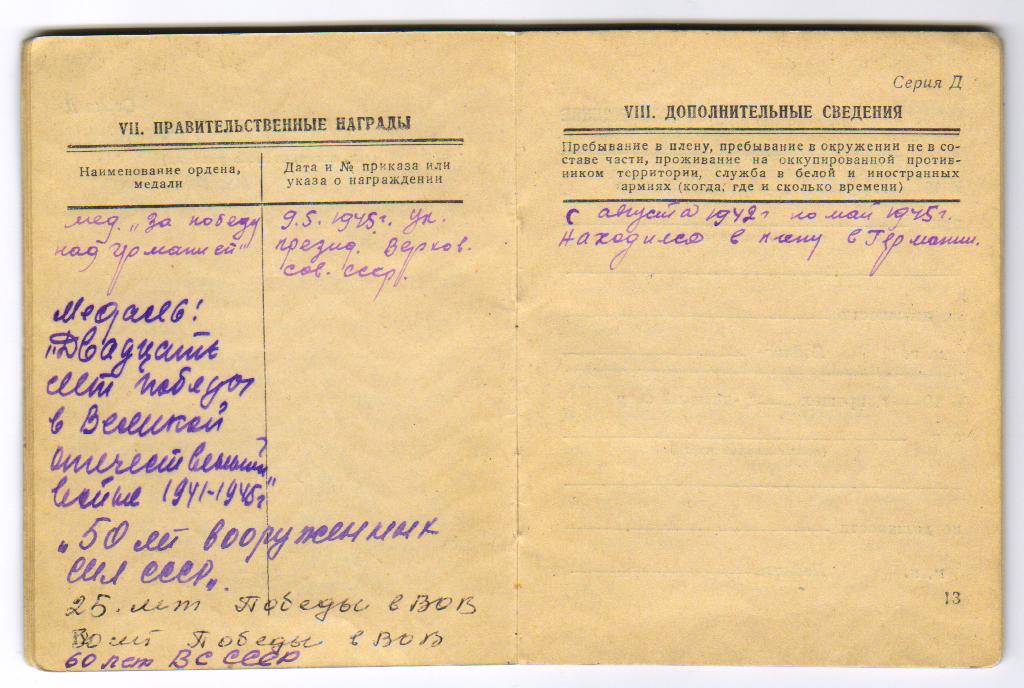 VII. ПРАВИТЕЛЬСТВЕННЫЕ НАГРАДЫ
Наименование ордена,
медали
Дата и № приказа или
указа о награждении
мед. „За победу
над Германией"
9.5. 1945г. Ук.
презид. Верхов.
Сов. СССР.
Медаль:
„Двадцать
лет победы
в Великой
отечественной
войне 1941-1945г"
„50 лет вооруженных
сил СССР„.
25. лет Победы в ВОВ
30 лет Победы в ВОВ
60 лет ВС СССР
Серия Д
VIII. ДОПОЛНИТЕЛЬНЫЕ СВЕДЕНИЯ
Пребывание в плену, пребывание в окружении не в со-
ставе части, проживание на оккупированной против-
ником территории, служба в белой и иностранных
армиях (когда, где и сколько времени)
С августа 1942г по май 1945г.
Находился в плену в Германии.
13